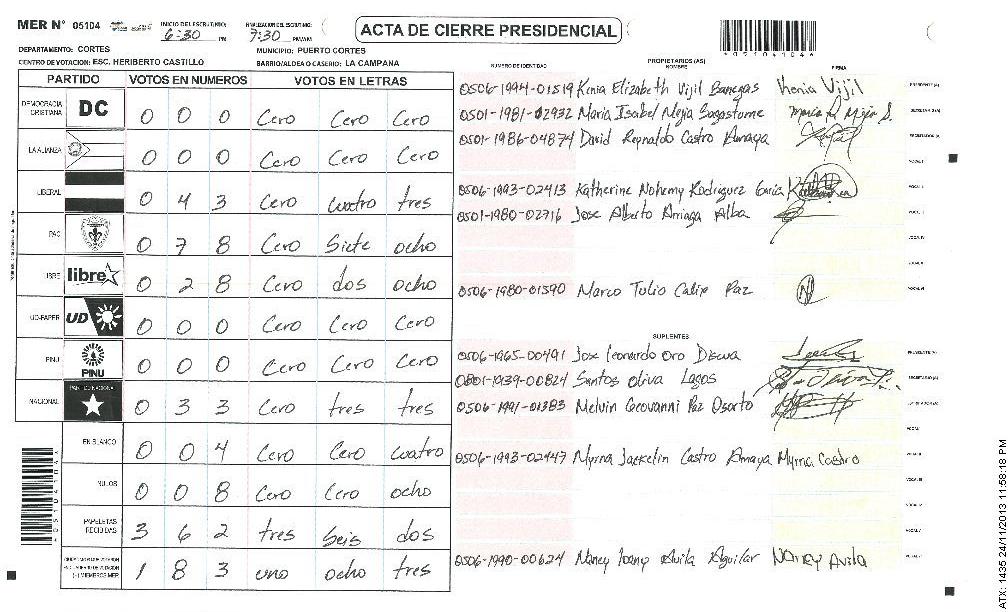 MER N° 05104
INICIO DEL ESCRUTINIO: 6:30 PM
FINALIZACION DEL ESCRUTINIO: 7:30 PM/AM
ACTA DE CIERRE PRESIDENCIAL
DEPARTAMENTO: CORTES
MUNICIPIO: PUERTO CORTES
CENTRO DE VOTACION: ESC. HERIBERTO CASTILLO
BARRIO/ALDEA O CASERIO: LA CAMPANA
PARTIDO VOTOS EN NUMEROS VOTOS EN LETRAS
DEMOCRACIA CRISTIANA DC 0 0 0 Cero Cero Cero
LA ALIANZA 0 0 0 Cero Cero Cero
LIBERAL 0 4 3 Cero cuatro tres
PAC 0 7 8 Cero Siete ocho
LIBRE libre 0 2 8 Cero dos ocho
UD-FAPER UD 0 0 0 Cero Cero Cero
PINU PINU 0 0 0 Cero Cero Cero
NACIONAL PARTIDO NACIONAL 0 3 3 Cero tres tres
EN BLANCO 0 0 4 Cero Cero cuatro
NULOS 0 0 8 Cero Cero ocho
PAPELETAS RECIBIDAS 3 6 2 tres seis dos
(-) MIEMBROS MER 1 8 3 uno ocho tres
NUMERO DE IDENTIDAD PROPIETARIOS (AS) NOMBRE FIRMA
0506-1994-01519 Kenia Elizabeth Vijil Banegas Kenia Vijil PRESIDENTE (A)
0501-1981-02932 Maria Isabel Mejia Sagastome SECRETARIO (A)
0501-1986-04874 David Reynaldo Castro Amaya ESCRUTADOR (A)
VOCAL I
0506-1993-02413 Katherine Nohemy Rodriguez Garcia VOCAL II
0501-1980-02716 Jose Alberto Arriaga Alba VOCAL III
VOCAL IV
VOCAL V
0506-1980-01590 Marco Tulio Calix Paz VOCAL VI
SUPLENTES
0506-1965-00491 Jose Leonardo Oro PRESIDENTE (A)
0801-1939-00824 Santos Oliva Lagos SECRETARIO (A)
0506-1991-01383 Melvin Geovanni Paz Osorto ESCRUTADOR (A)
VOCAL I
0506-1993-02447 Myrna Jackelin Castro Amaya Myrna Castro VOCAL II
VOCAL III
VOCAL IV
VOCAL V
0506-1990-00624 Nancy Ioany Avila Aguilar Nancy Avila
ATX: 1435 24/11/2013 11:58:18 PM